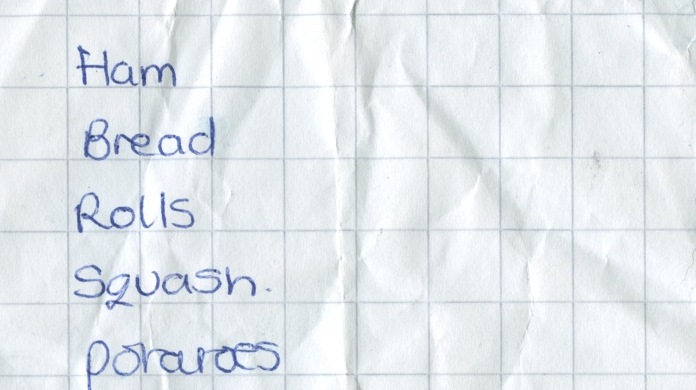 Ham
Bread
Rolls
Squash.
potatoes